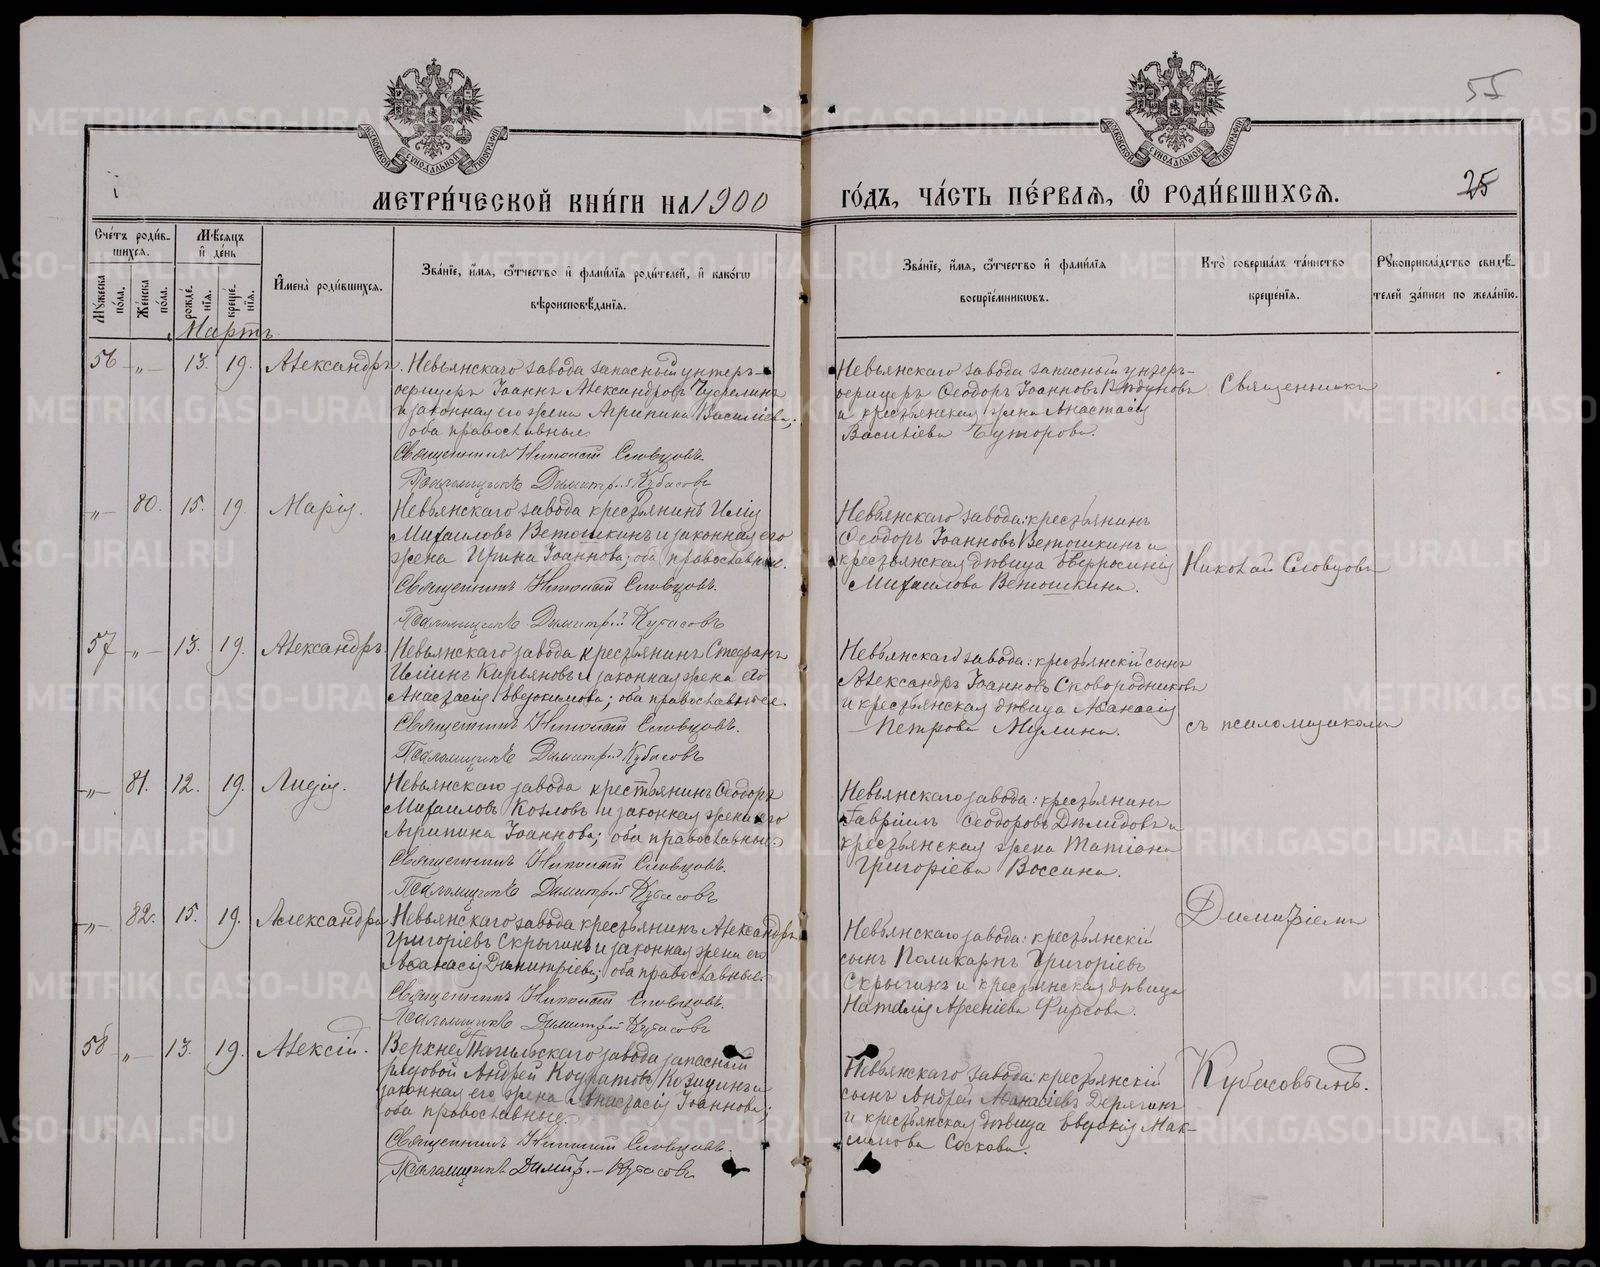 55
МОСКОВСКОЙ СѴНОДАЛЬНОЙ ТИПОГРАФІИ
МОСКОВСКОЙ СѴНОДАЛЬНОЙ ТИПОГРАФІИ
МЕТРИ́ЧЕСКОЙ КНИ́ГИ НА 1900
ГО́ДЪ, ЧА́СТЬ ПЕ́РВАЯ, Ѡ РОДИ́ВШИХСЯ.
25
Сче́тъ роди́в-
шихся.
Мѣ́сяцъ
и҆ де́нь
Мꙋ́жеска
по́ла.
Же́нска
по́ла.
рожде́-
нія.
креще́-
нія.
И҆мена̀ роди́вшихся.
Зва́ніе, и҆́мя, ѻ҆́тчество и҆ фами́лія роди́телей, и҆ како́гѡ
вѣроисповѣ́данія.
Зва́ніе, и҆́мя, ѻ҆́тчество и҆ фами́лія
воспріе́мникѡвъ.
Кто̀ соверша́лъ та́инство
креще́нія.
Рꙋкоприкла́дство свидѣ́-
телей за́писи по жела́нію.
Мартъ
56 -„- 13. 19. Александръ.
Невьянскаго завода запасный унтеръ-
офицеръ Іоаннъ Александровъ
и законная его жена Агрипина Васильева;
оба православные.
Священникъ Николай Словцовъ.
Псаломщикъ Димитрій Кубасовъ
Невьянскаго завода запасный унтеръ-
офицеръ Ѳеодоръ Іоанновъ
и крестьянская жена Анастасія
Васильева Буторова.
Священникъ
-„- 80. 15. 19. Марія.
Невьянскаго завода крестьянинъ Илія
Михаиловъ Ветошкинъ и законная его
жена Ирина Іоаннова; оба православные.
Священникъ Николай Словцовъ.
Псаломщикъ Димитрій Кубасовъ
Невьянскаго завода: крестьянинъ
Ѳеодоръ Іоанновъ Ветошкинъ и
крестьянская дѣвица Евфросинія
Михаилова Ветошкина.
Николай Словцовъ
57 -„- 13. 19. Александръ.
Невьянскаго завода крестьянинъ Стефанъ
Иліинъ Кирьяновъ и законная жена его
Анастасія Евдокимова; оба православные.
Священникъ Николай Словцовъ.
Псаломщикъ Димитрій Кубасовъ
Невьянскаго завода: крестьянскій сынъ
Александръ Іоанновъ Сковородниковъ
и крестьянская дѣвица Аѳанасія
Петрова Мулина.
съ псаломщикомъ
-„- 81. 12. 19. Лидія.
Невьянскаго завода крестьянинъ Ѳеодоръ
Михаиловъ Козловъ и законная жена его
Агрипина Іоаннова; оба православные.
Священникъ Николай Словцовъ.
Псаломщикъ Димитрій Кубасовъ
Невьянскаго завода: крестьянинъ
Гавріилъ Ѳеодоровъ Демидовъ и
крестьянская жена Татіана
Григоріева Воссина.
Димитріемъ
-„- 82. 15. 19. Александра
Невьянскаго завода крестьянинъ Александръ
Григоріевъ Скрыгинъ и законная жена его
Аѳанасія Димитріева; оба православные.
Священникъ Николай Словцовъ.
Псаломщикъ Димитрій Кубасовъ
Невьянскаго завода: крестьянскій
сынъ Поликарпъ Григоріевъ
Скрыгинъ и крестьянская дѣвица
Наталія Арсеніева Фирсова.
58 „- 13. 19. Алексій.
Верхнетагильскаго завода запасный
рядовой Андрей Кодратовъ Козицинъ и
законная его жена Анастасія Іоаннова;
оба православные.
Священникъ Николай Словцовъ.
Псаломщикъ Димитр. Кубасовъ
Невьянскаго завода: крестьянскій
сынъ Андрей Аѳанасіевъ Дерягинъ
и крестьянская дѣвица Евдокія Мак-
симова Соскова.
Кубасовымъ.